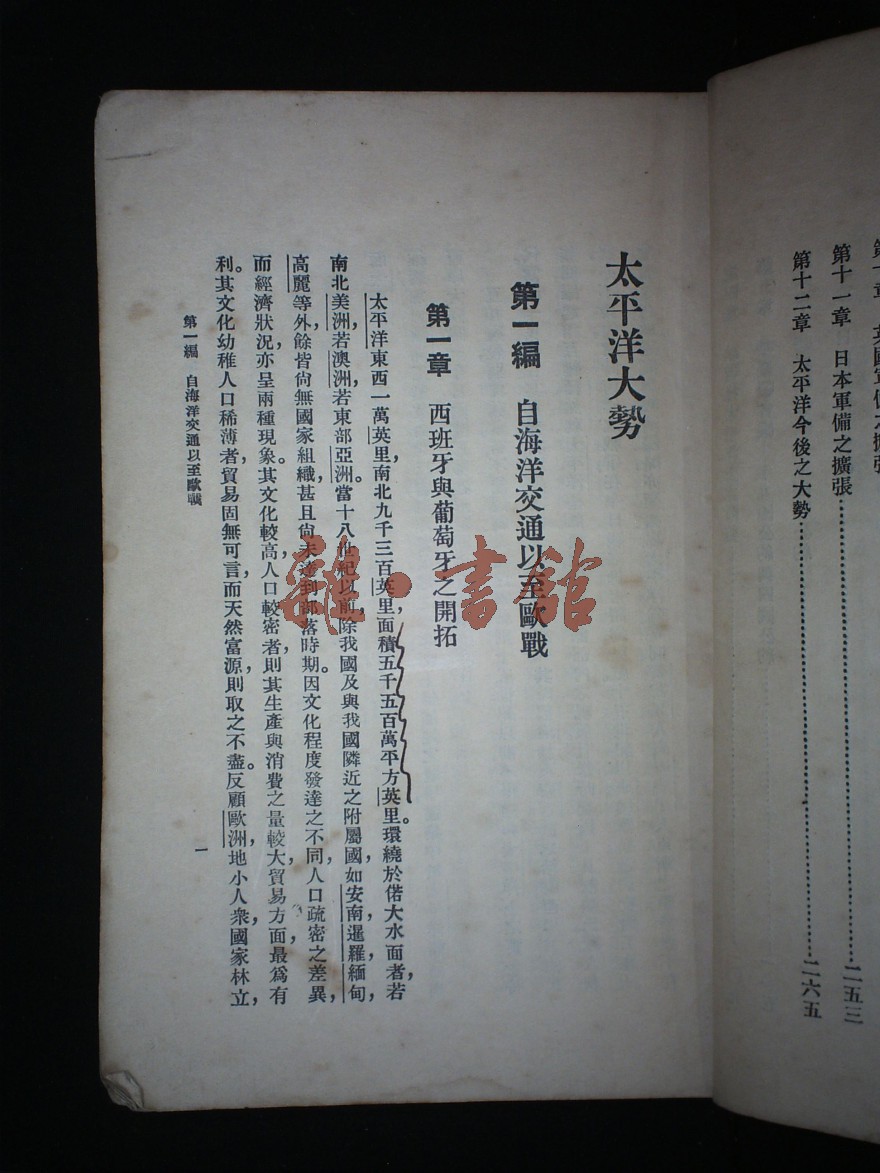 第十一章 日本軍備之擴張……二五三
第十二章 太平洋今後之大勢……二六五
太平洋大勢
第一編 自海洋交通以至歐戰
第一章 西班牙與葡萄牙之開拓
太平洋東西一萬英里，南北九千三百英里，面積五千五百萬平方英里。環繞於偌大水面者，若
南北美洲，若澳洲，若東部亞洲。當十八世紀以前，除我國及與我國隣近之附屬國，如安南，暹羅，緬甸，
高麗等外，餘皆尙無國家組織，甚且尙未達到部落時期。因文化程度發達之不同，人口疏密之差異，
而經濟狀況亦呈兩種現象。其文化較高，人口較密者，則其生產與消費之量較大，貿易方面，最爲有
利。其文化幼稚人口稀薄者，貿易固無可言，而天然富源，則取之不盡。反顧歐洲，地小人衆，國家林立，
第一編 自海洋交通以至歐戰
一
雜·書館